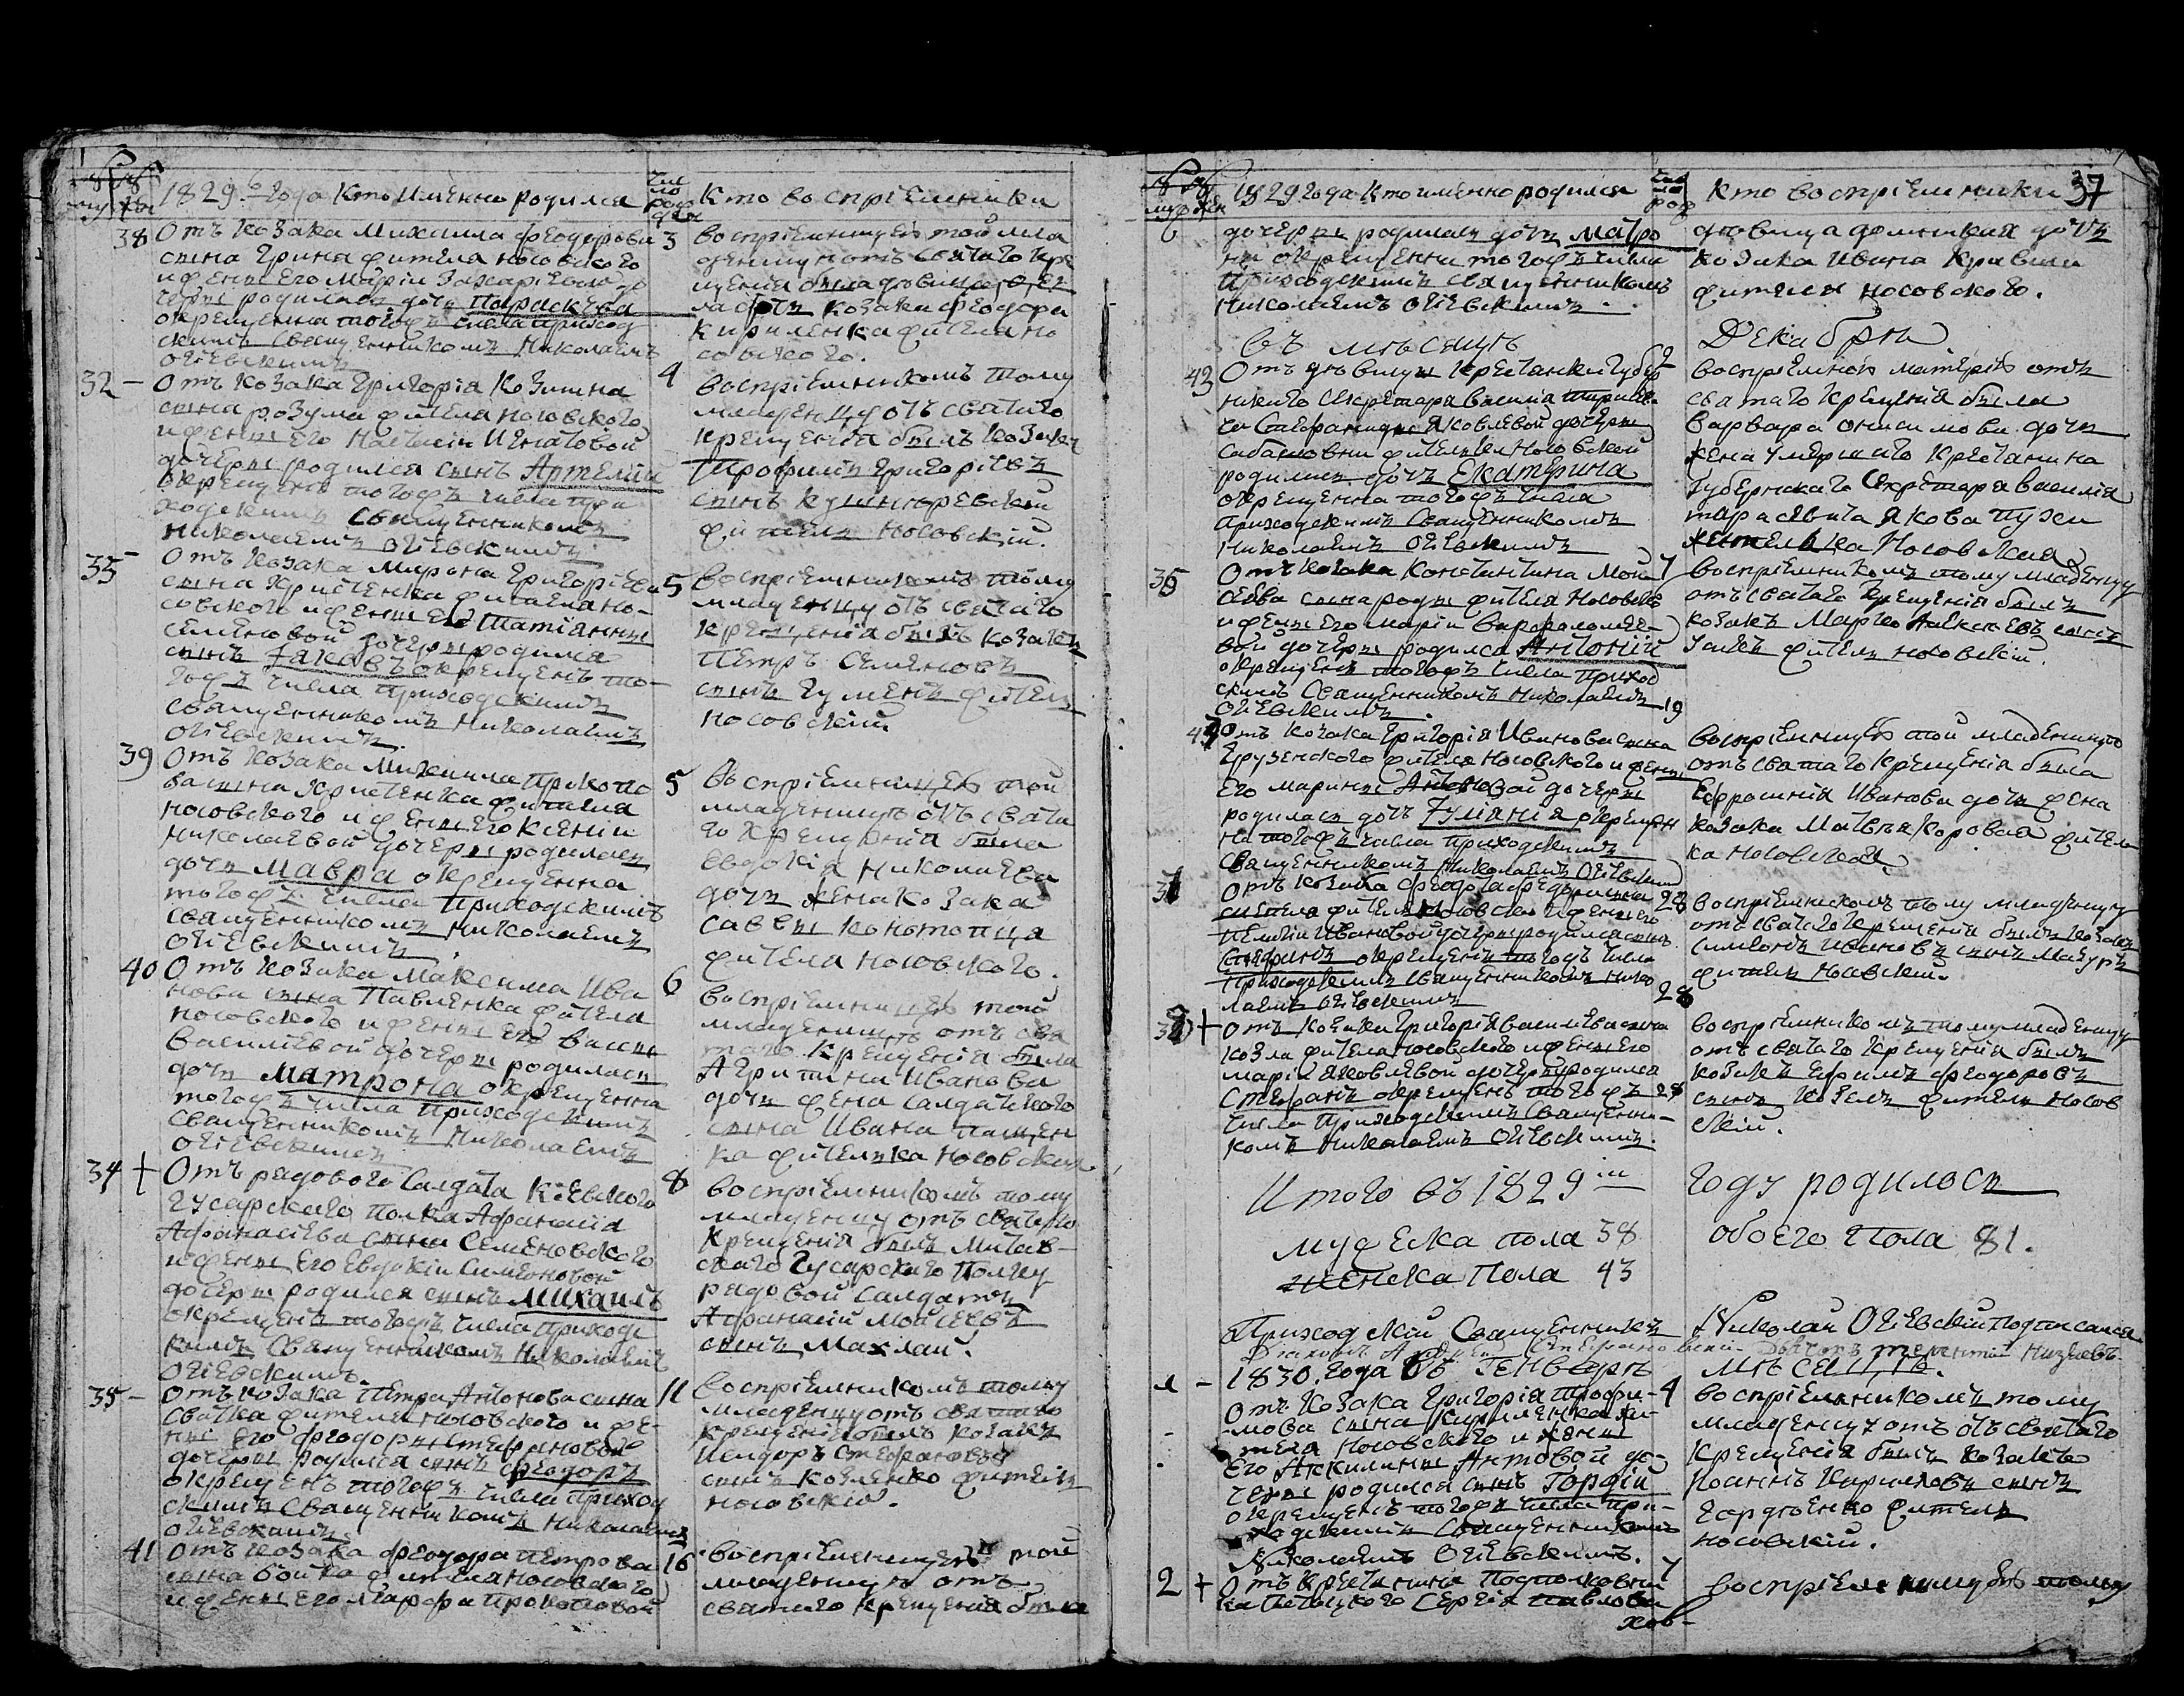 1829.го года Кто Именно родился
число рож ден
Кто воспріемники
38 Отъ козака Михаила Феодорова 3
сына Грина жителя носовского
и жены Его Маріи Захаріевой до
чери родилась дочь Параскева
окрещенна тогожъ числа приход
скимъ Священникомъ Николаемъ
Огіевскимъ
воспріемницею той мла
денцу отъ святаго кре
щенія была
дочь козака Феодора
Кириленка жителя но
совского.
32 - Отъ козака Григорія Козмина 4
сына розума жителя носовского
и жены Его Настасіи Игнатовой
дочери родился сынъ Артемій
окрещенъ тогожъ числа при
ходскимъ Священникомъ
николаемъ огіевскимъ
воспріемникомъ тому
младенцу отъ святаго
крещенія былъ козакъ
Трофимъ Григоріевъ
сынъ
житель носовскій.
33 - Отъ козака Мирона Григоріева 5
сына Христенка жителя но-
совского и жены Его Татіанны
семеновой дочери родился
сынъ Іаковъ окрещенъ то-
гожъ числа приходскимъ
священникомъ николаемъ
огіевскимъ.
воспріемникомъ тому
младенцу отъ святаго
крещенія былъ козакъ
Петръ Семеновъ
сынъ Гуменъ житель
носовскій.
39 Отъ козака Михаила Прокопо 5
ва сына Христенка жителя
носовского и жены Его Ксеніи
николаевой дочери родилась
дочь Мавра окрещенна
тогожъ числа приходскимъ
священникомъ николаемъ
огіевскимъ.
воспріемницею той
младеницѣ отъ свята
го крещенія была
Евдокія николаева
дочь жена козака
саввы конотопца
жителя носовского.
40 Отъ козака Максима Ива 6
нова сына Павленка жителя
носовского и жены Его Васс
василіевой дочери родилась
дочь Матрона окрещенна
тогожъ числа приходскимъ
священникомъ николаемъ
огіевскимъ
воспріемницею той
младеницѣ отъ свя
таго крещенія была
Агрипина Иванова
дочь жена салдатского
сына Ивана Пащен
ка жителька носовская
34 + Отъ рядового Салдата Кіевского 8
гусарскаго полка Афанасія
Афанасіева сына Семеновского
и жены Его Евдокіи Симеоновой
дочери родился сынъ Михаилъ
окрещенъ тогожъ числа приходс
кимъ Священникомъ Николаемъ
Огіевскимъ.
воспріемникомъ тому
младенцу отъ святаго
крещенія былъ Митав-
скаго Гусарскаго Полку
рядовой Салдатъ
Афанасій Мойсеевъ
сынъ Махлай.
35 - Отъ козака Петра Антонова сына 11
жителя носовского и же-
ны Его Феодоры Стефановой
дочери родился сынъ Феодоръ
окрещенъ тогожъ числа приход
скимъ Священникомъ Николаемъ
огіевскимъ
воспріемникомъ тому
младенцу отъ святаго
крещенія былъ козакъ
Исидоръ Стефановъ
сынъ Козленко житель
носовскій.
41 Отъ козака Феодора Петрова 16
сына Бойка жителя носовского
и жены Его Марфы Прокоповой
воспріемницею той
младеницѣ отъ
святаго крещенія была
1829 года Кто именно родился
число рож
Кто воспріемники 37
дочери родилась дочь Матро
на окрещенна тогожъ числа
Приходскимъ священникомъ
Николаемъ огіевскимъ.
дѣвица дочь
козака Ивана Кравца
жителя носовского.
въ мѣсяцѣ Декабрѣ
43 Отъ дѣвицы крестянки Губер 2
нскаго Секретаря Василія
Яковлевой дочери
жительки носовской
родилась дочь Екатерина
окрещенна тогожъ числа
приходскимъ Священникомъ
Николаемъ огіевскимъ
воспріемною матерію отъ
святаго крещенія была
Варвара Онисимова дочь
жена умершаго крестянина
Губернскаго Секретаря Василія
Тарасевича Якова Пузи
жителька Носовская
36 Отъ козака Константина Мой 7
сеева сына жителя Носовско
и жены Его Маріи Варфоломее-
вой дочери родился Антоній
окрещенъ тогожъ числа приход
скимъ Священникомъ Николаемъ
Огіевскимъ.
воспріемникомъ тому младенцу
отъ святаго крещенія былъ
козакъ Марко Алексеевъ сынъ
житель носовскій.
Отъ козака Григорія Иванова сына 19
Грузенского жителя Носовского и жены
Его Марины дочери
родилась дочь Іуліанія окрещен
на тогожъ числа приходскимъ
священникомъ Николаемъ Огіевским
воспріемницею той младеницѣ
отъ святаго крещенія была
Ефросинія Иванова дочь жена
козака Матвѣя Коровая житель
ка носовская
37 Отъ козака 28
жителя носовского и жены его
Ивановой дочери родился сынъ
Стефанъ окрещенъ тогожъ числа
Приходскимъ Священникомъ нико
лаемъ огіевскимъ
воспріемникомъ тому младенцу
отъ святаго крещенія былъ козакъ
Симеонъ Ивановъ сынъ Мазуръ
житель носовскій.
38 + Отъ козака Григорія Василіева сына 28
козла жителя носовского и жены Его
Маріи Яковлевой дочери родился
Стефанъ окрещенъ тогожъ 28
числа приходскимъ Священни-
комъ николаемъ огіевскимъ.
воспріемникомъ тому младенцу
отъ святаго крещенія былъ
козакъ Ефимъ Феодоровъ
сынъ Козелъ житель носов
скій.
Итого въ 1829 м году родилось
мужеска пола 38
женска Пола 43
обоего Пола 81.
Приходскій Священникъ Николай Огіевскій подписался
1830 года въ Генварѣ мѣсяцѣ.
1 - Отъ козака Григорія Трофи- 4
мова сына Кириленка жи-
теля носовского и жены
Его Акилины до-
чери родился сынъ Гордій
окрещенъ тогожъ числа при-
ходскимъ Священникомъ
Николаемъ Огіевскимъ.
воспріемникомъ тому
младенцу отъ отъ святаго
крещенія былъ козакъ
Іоаннъ Кириловъ сынъ
житель
носовскій.
2 + Отъ Крестянина Подполковни 7
ка Сергія Павлови
воспріемницею тому